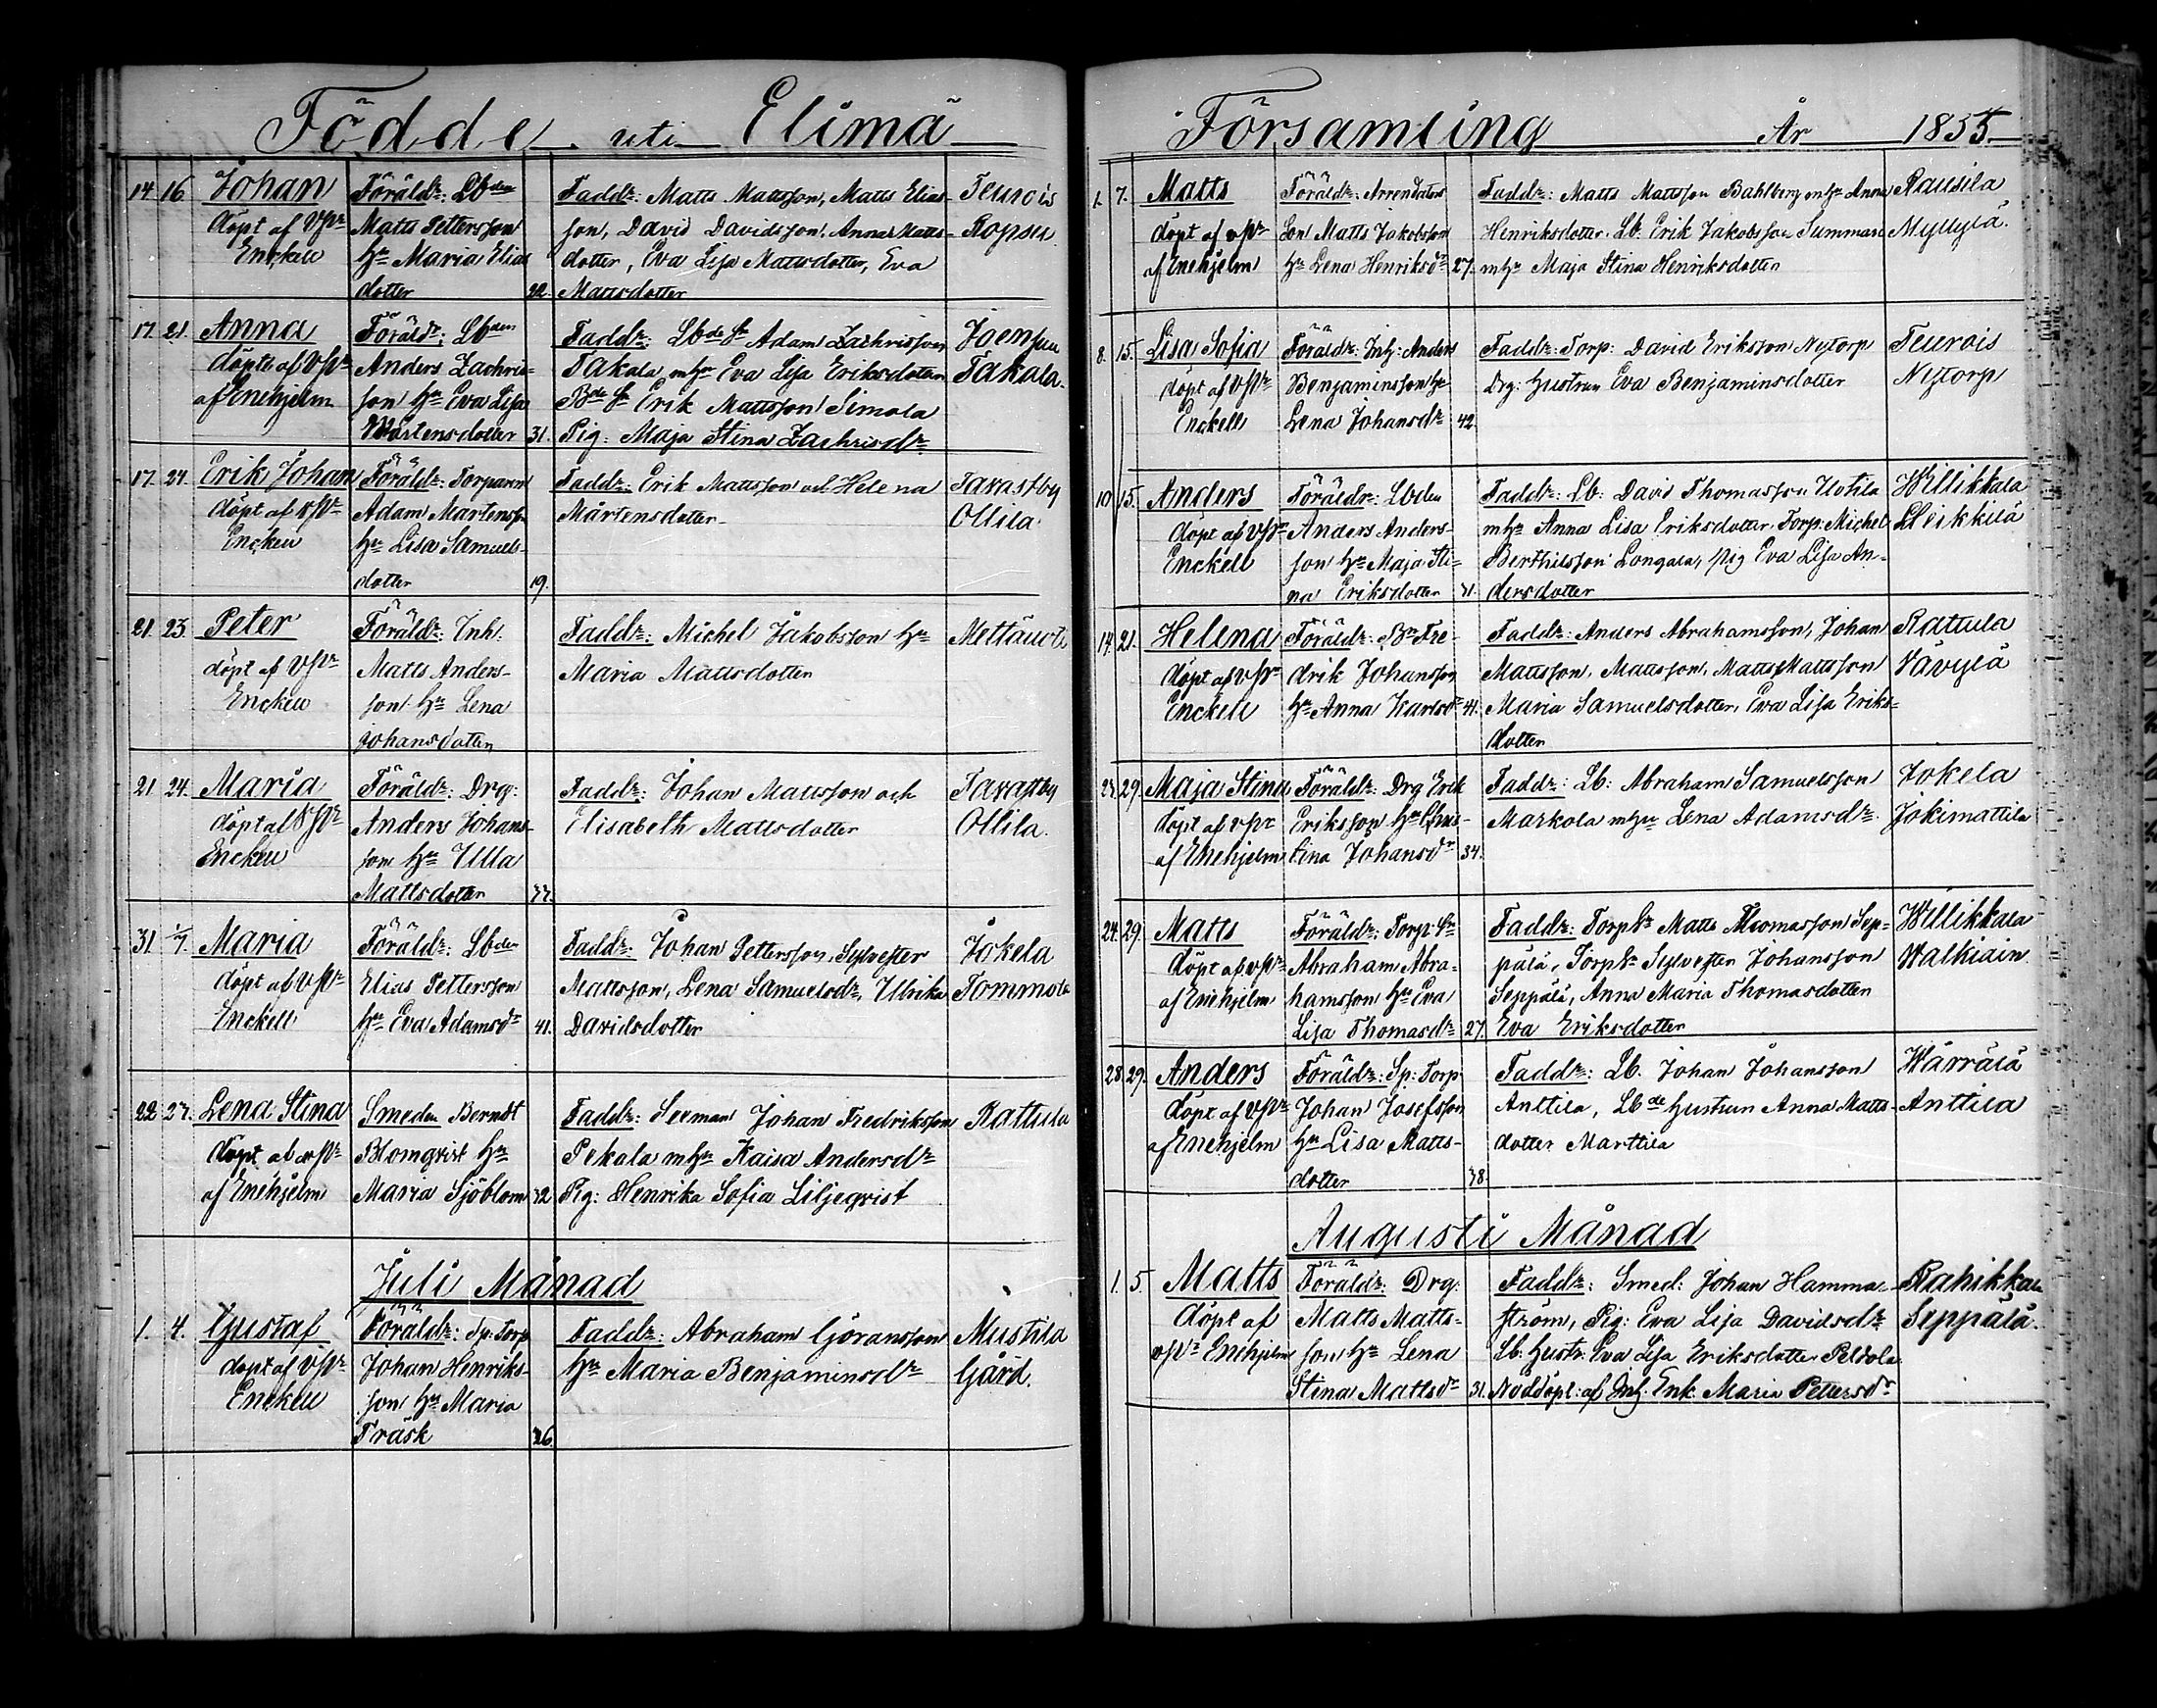 Födde uti Elimä
14 16 Johan Föräldr: Lbden Faddr: Matts Mattsson, Matts Elias- Teurois
döpt af VPr Matts Pettersson son, David Davidsson, Anna Matts- Ropsu
Enckell Hu Maria Elias dotter, Eva Lisa Mattsdotter, Eva
dotter 22. Mattsdotter
17. 21. Anna Föräldr: Lbden Faddr: Lbde Sn Adam Zachrisson Jaensuu
döpt af VPr Anders Zachris- Takala mhu Eva Lisa Eriksdotter Takala.
af Enehjelm son Hu Eva Lisa Bde Sn Erik Mattsson Simola
Mårtensdotter 31. Pig: Maja Stina Zachrisdr
17. 24. Erik Johan Föräldr: Torparen Faddr: Erik Mattsson och Helena Tavastby
döpt af VPr Adam Mårtensson Mårtensdotter Ollila.
Enckell Hu Lisa Samuels-
dotter 19.
21. 23 Peter Föräldr: Inh. Faddr: Michel Jakobsson Hu
döpt af VPr Matts Anders- Maria Mattsdotter
Enckell son Hu Lena
Johansdotter
21 24. Maria Föräldr: Drg: Faddr: Johan Mattsson och Tavastby
döpt af VPr Anders Johans- Elisabeth Mattsdotter Ollila.
Enckell son Hu Ulla
Mattsdotter
31 1/7. Maria Föräldr: Lbden Faddr: Johan Pettersson, Sylvester Jokela
döpt af VPr Elias Pettersson Mattsson, Lena Samuelsdr, Ulrika Tommola
Enckell Hu Eva Adamsdr 41. Davidsdotter
22 27. Lena Stina Smeden Berndt Faddr: Seeman Johan Fredriksson Rattula
döpt af VPr Blomqvist Hu Pekola mhu Kaisa Andersdr
af Enehjelm Maria Sjöblom 32 Pig: Henrika Sofia Liljeqvist
Juli Månad
1. 4. Gustaf Föräldr: Sp: Torp Faddr: Abraham Göransson Mustila
döpt af VPr Johan Henriks- Hu Maria Benjaminsdr Gård.
Enckell son Hu Maria
Träsk 26
Församling År 1855.
1. 7. Matts Föräldr: Arrendatorn Faddr: Matts Mattsson Bahlberg mhu Anna Rausila
döpt af VPr Son Matts Jakobsson Henriksdotter. Lb: Erik Jakobsson Summan Myllylä.
af Enehjelm Hu Lena Henriksdr 27. mhu Maja Stina Henriksdotter
8. 15. Lisa Sofia Föräldr: Inh: Anders Faddr: Torp: David Eriksson Nytorp Teurois
döpt af VPr Benjaminsson Hu Drg: Hustrun Eva Benjaminsdotter Nytorp
Enckell Lena Johansdr 42.
10 15. Anders Föräldr: Lbden Faddr: Lb: David Thomasson Uotila Willikkala
döpt af VPr Anders Anders- mhu Anna Lisa Eriksdotter. Torp: Michel
Enckell son Hu Maja Sti- Berthilsson Longala, Pig Eva Lisa An-
na Eriksdotter 31. dersdotter
17. 21. Helena Föräldr: Bn Fre- Faddr: Anders Abrahamsson, Johan Rattula
döpt af VPr drik Johansson Mattsson, Mattsson, Matts Mattsson Vävylä
Enckell Hu Anna Karlsdr 41. Maria Samuelsdotter, Eva Lisa Eriks-
dotter
23. 29. Maja Stina Föräldr: Drg Erik Faddr: Lb: Abraham Samuelsson Jokela
döpt af VPr Eriksson Hu Chris- Markola mhu Lena Adamsdr. Jokimattila
af Enehjelm tina Johansdr 34.
24. 29. Matts Föräldr: Torp: Sn Faddr: TorpSn Matts Thomasson Sep- Willikkala
döpt af VPr Abraham Abra- pälä, TorpSn Sylvester Johansson Walkiain
af Enehjelm hamsson Hu Eva Seppälä, Anna Maria Thomasdotter
Lisa Thomasdr 27. Eva Eriksdotter
28. 29. Anders Föräldr: Sp: Torp Faddr: Lb. Johan Johansson Wärrälä
döpt af VPr Johan Josefsson Anttila, Lbde Hustrun Anna Matts- Anttila
af Enehjelm Hu Lisa Matts- dotter Marttila
dotter 38.
Augusti Månad
1. 5. Matts Föräldr: Drg: Faddr: Smed: Johan Hamma- Rahikkala
döpt af Matts Matts- ström, Pig: Eva Lisa Davidsdr Seppälä.
VPr Enehjelm son Hu Lena Lb: Hustr: Eva Lisa Eriksdotter Peldola
Stina Mattsdr 31. Nöddöpt: af Inh: Enk. Maria Pettersdr